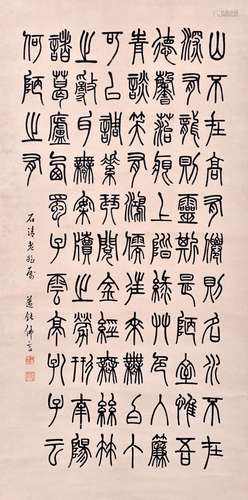 山不在高有僊則名水不在
深有龍則靈斯是陋室惟吾
德馨苔痕上階綠草色入簾
青談笑有鴻儒往來無白丁
可以調素琴閱金經無絲竹
之亂耳無案牘之勞形南陽
諸葛廬西蜀子雲亭孔子云
何陋之有
石清老兄屬 邁鈍佛言